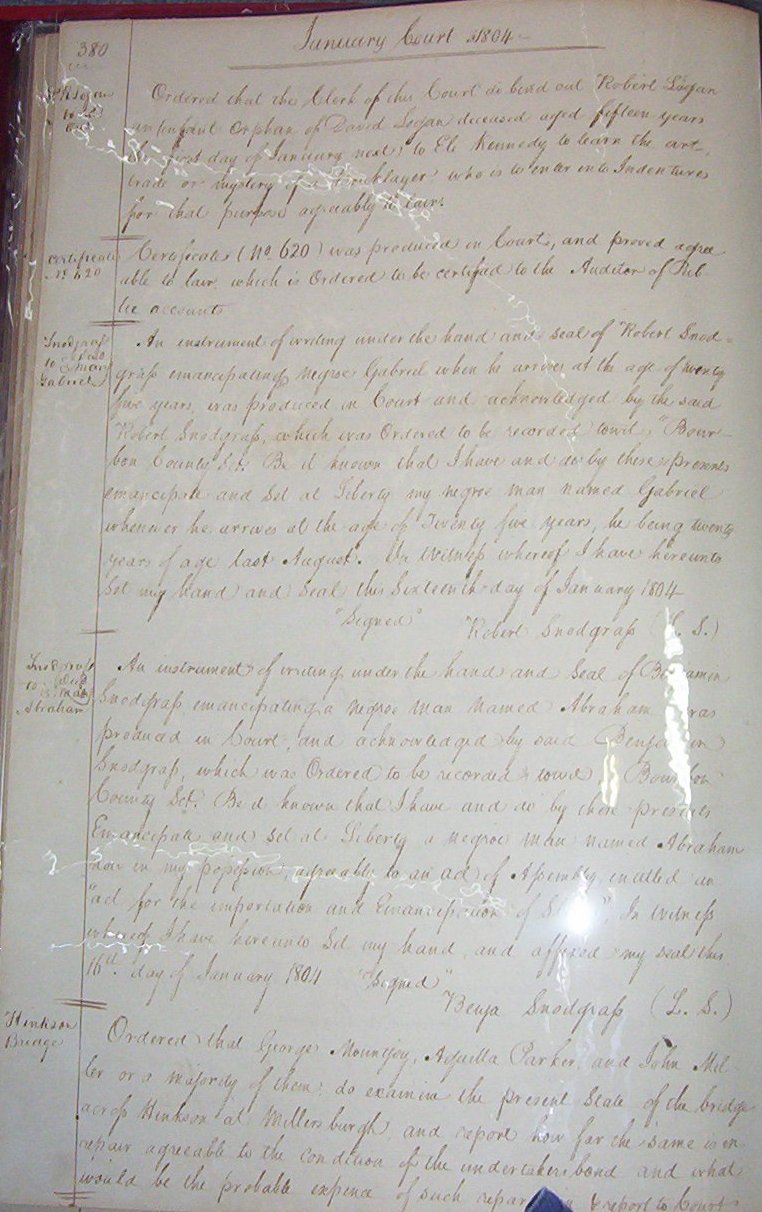 380
January Court 1804
Ordered that the Clerk of this Court do bind out Robert Logan
an infant orphan of David Logan deceased aged fifteen years
first day of January next, to Eli Kennedy to learn the art
trade or mystery of a Bricklayer who is to enter into Indentures
for that purpose agreeably to law.
Certificate
No 620
Certificate (No. 620) was produced in Court, and proved agree
able to law which is Ordered to be certified to the Auditor of Pub-
lic accounts
Snodgrass
to
Gabriel
An instrument of writing under the hand and seal of Robert Snod-
grass emancipating negroe Gabriel when he arrives at the age of twenty
five years, was produced in Court and acknowledged by the said
Robert Snodgrass, which was Ordered to be recorded towit, "Bour-
bon County Sct. Be it known that I have and do by these presents
emancipate and set at Liberty my negroe man named Gabriel
whenever he arrives at the age of Twenty five years, he being twenty
years of age last August. In Witness whereof I have hereunto
set my hand and seal this Sixteenth day of January 1804
"Signed"
Robert Snodgrass (L. S.)
Snodgrass
to
Abraham
An instrument of writing under the hand and Seal of Benjamin
Snodgrass emancipating a negroe man named Abraham was
produced in Court, and acknowledged by said Benjamin
Snodgrass, which was Ordered to be recorded towit, Bourbon
County Sct. Be it known that I have and do by these presents
Emancipate and set at Liberty a negroe man named Abraham
now in my possession, agreeable to an act of Assembly, entitled an
"act for the importation and Emancipation of Slaves", In witness
whereof I have hereunto set my hand and affixed my seal this
16th day of January 1804 "Signed"
Benja Snodgrass (L. S.)
Hinkson
Bridge
Ordered that George Mountjoy, Aquilla Parker, and John Mil-
ler or a majority of them, do examine the present State of the bridge
across Hinkson at Millersburgh and report how far the same is in
repair agreeable to the condition of the undertakers bond and what
would be the probable expence of such repair & report to Court